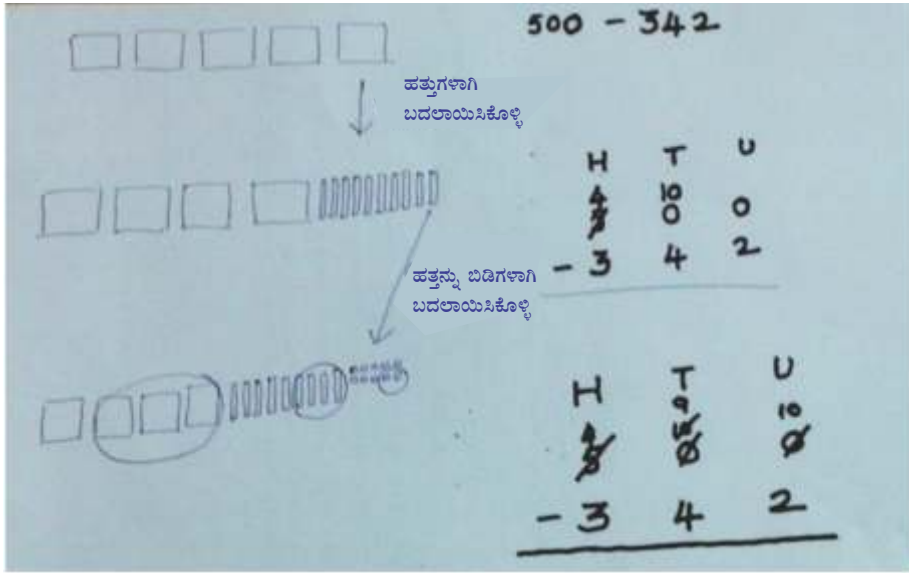 500 - 342
ಹತ್ತುಗಳಾಗಿ
ಬದಲಾಯಿಸಿಕೊಳ್ಳಿ
H T U
4 10
5 0 0
- 3 4 2
ಹತ್ತನ್ನು ಬಿಡಿಗಳಾಗಿ
ಬದಲಾಯಿಸಿಕೊಳ್ಳಿ
H T U
9
4 10 10
5 0 0
- 3 4 2